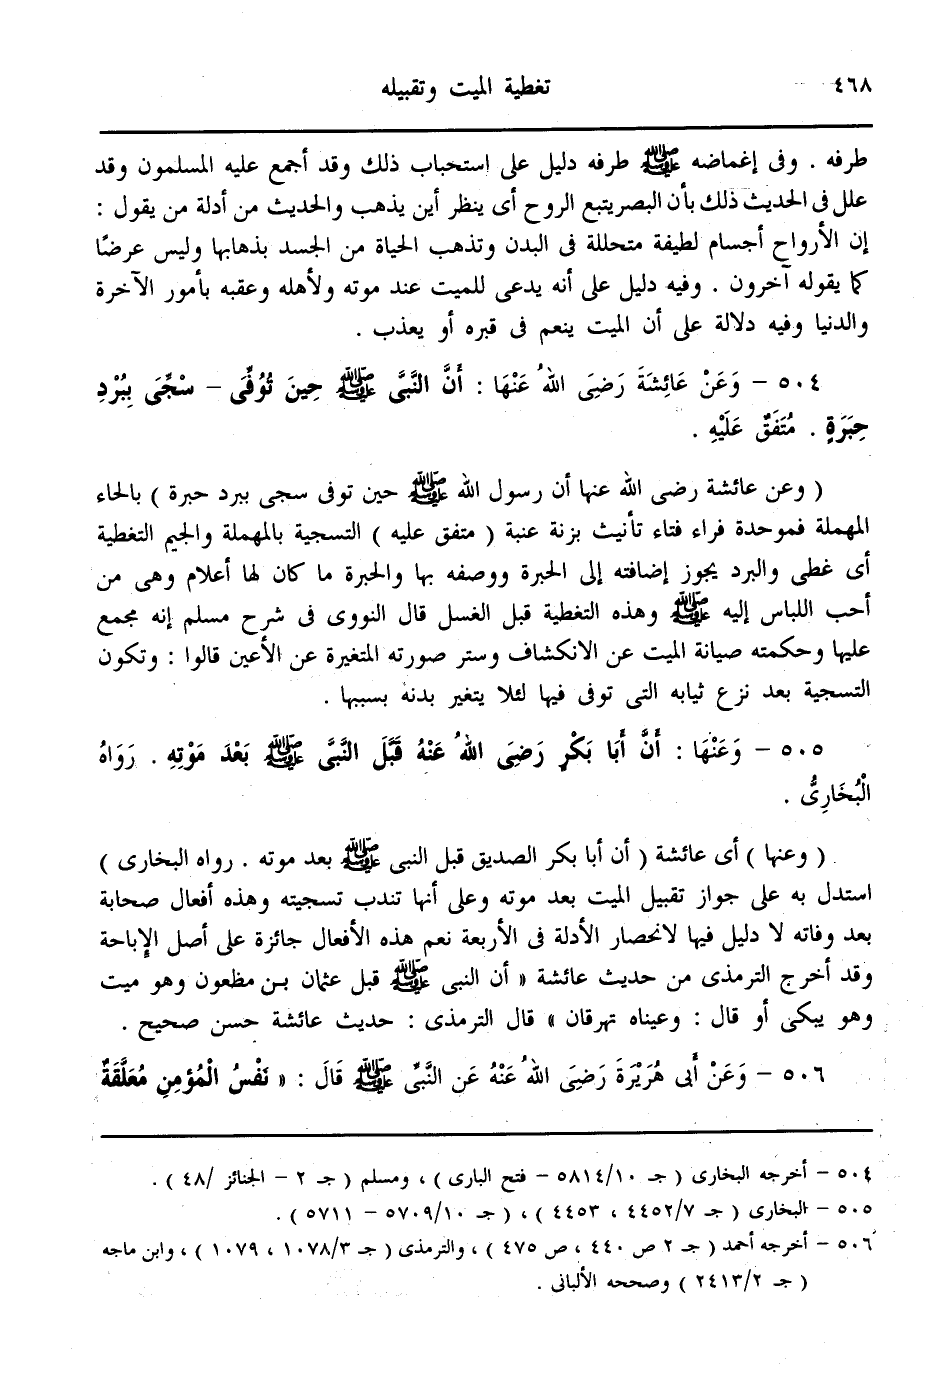 ٤٦٨
تغطية الميت وتقبيله
طرفه . وفى إغماضه ﷺ طرفه دليل على استحباب ذلك وقد أجمع عليه المسلمون وقد
علل فى الحديث ذلك بأن البصر يتبع الروح أى ينظر أين يذهب والحديث من أدلة من يقول :
إن الأرواح أجسام لطيفة متحللة فى البدن وتذهب الحياة من الجسد بذهابها وليس عرضًا
كما يقوله آخرون . وفيه دليل على أنه يدعى للميت عند موته ولأهله وعقبه بأمور الآخرة
والدنيا وفيه دلالة على أن الميت ينعم فى قبره أو يعذب .
٥٠٤ – وَعَنْ عَائِشَةَ رَضِىَ اللهُ عَنْهَا : أَنَّ النَّبِىَّ ﷺ حِينَ تُوُفِّىَ – سُجِّىَ بِبُرْدِ
حِبَرَةٍ . مُتَّفَقٌ عَلَيْهِ .
( وعن عائشة رضى الله عنها أن رسول الله ﷺ حين توفى سجى ببرد حبرة ) بالحاء
المهملة فموحدة فراء فتاء تأنيث بزنة عنبة ( متفق عليه ) التسجية بالمهملة والجيم التغطية
أى غطى والبرد يجوز إضافته إلى الحبرة ووصفه بها والحبرة ما كان لها أعلام وهى من
أحب اللباس إليه ﷺ وهذه التغطية قبل الغسل قال النووى فى شرح مسلم إنه مجمع
عليها وحكمته صيانة الميت عن الانكشاف وستر صورته المتغيرة عن الأعين قالوا : وتكون
التسجية بعد نزع ثيابه التى توفى فيها لئلا يتغير بدنه بسببها .
٥٠٥ – وَعَنْهَا : أَنَّ أَبَا بَكْرٍ رَضِىَ اللهُ عَنْهُ قَبَّلَ النَّبِىَّ ﷺ بَعْدَ مَوْتِهِ . رَوَاهُ
الْبُخَارِىُّ .
( وعنها ) أى عائشة ( أن أبا بكر الصديق قبل النبى ﷺ بعد موته . رواه البخارى )
استدل به على جواز تقبيل الميت بعد موته وعلى أنها تندب تسجيته وهذه أفعال صحابة
بعد وفاته لا دليل فيها لانحصار الأدلة فى الأربعة نعم هذه الأفعال جائزة على أصل الإباحة
وقد أخرج الترمذى من حديث عائشة « أن النبى ﷺ قبل عثمان بن مظعون وهو ميت
وهو يبكى أو قال : وعيناه تهرقان » قال الترمذى : حديث عائشة حسن صحيح .
٥٠٦ – وَعَنْ أَبِى هُرَيْرَةَ رَضِىَ اللهُ عَنْهُ عَنِ النَّبِىِّ ﷺ قَالَ : « نَفْسُ الْمُؤْمِنِ مُعَلَّقَةٌ
٥٠٤ – أخرجه البخارى ( جـ ٥٨١٤/١٠ – فتح البارى ) ، ومسلم ( جـ ٢ – الجنائز /٤٨ ) .
٥٠٥ – البخارى ( جـ ٤٤٥٢/٧ ، ٤٤٥٣ ) ، ( جـ ٥٧٠٩/١٠ – ٥٧١١ ) .
٥٠٦ – أخرجه أحمد ( جـ ٢ ص ٤٤٠ ، ص ٤٧٥ ) ، والترمذى ( جـ ١٠٧٨/٣ ، ١٠٧٩ ) ، وابن ماجه
( جـ ٢٤١٣/٢ ) وصححه الألبانى .